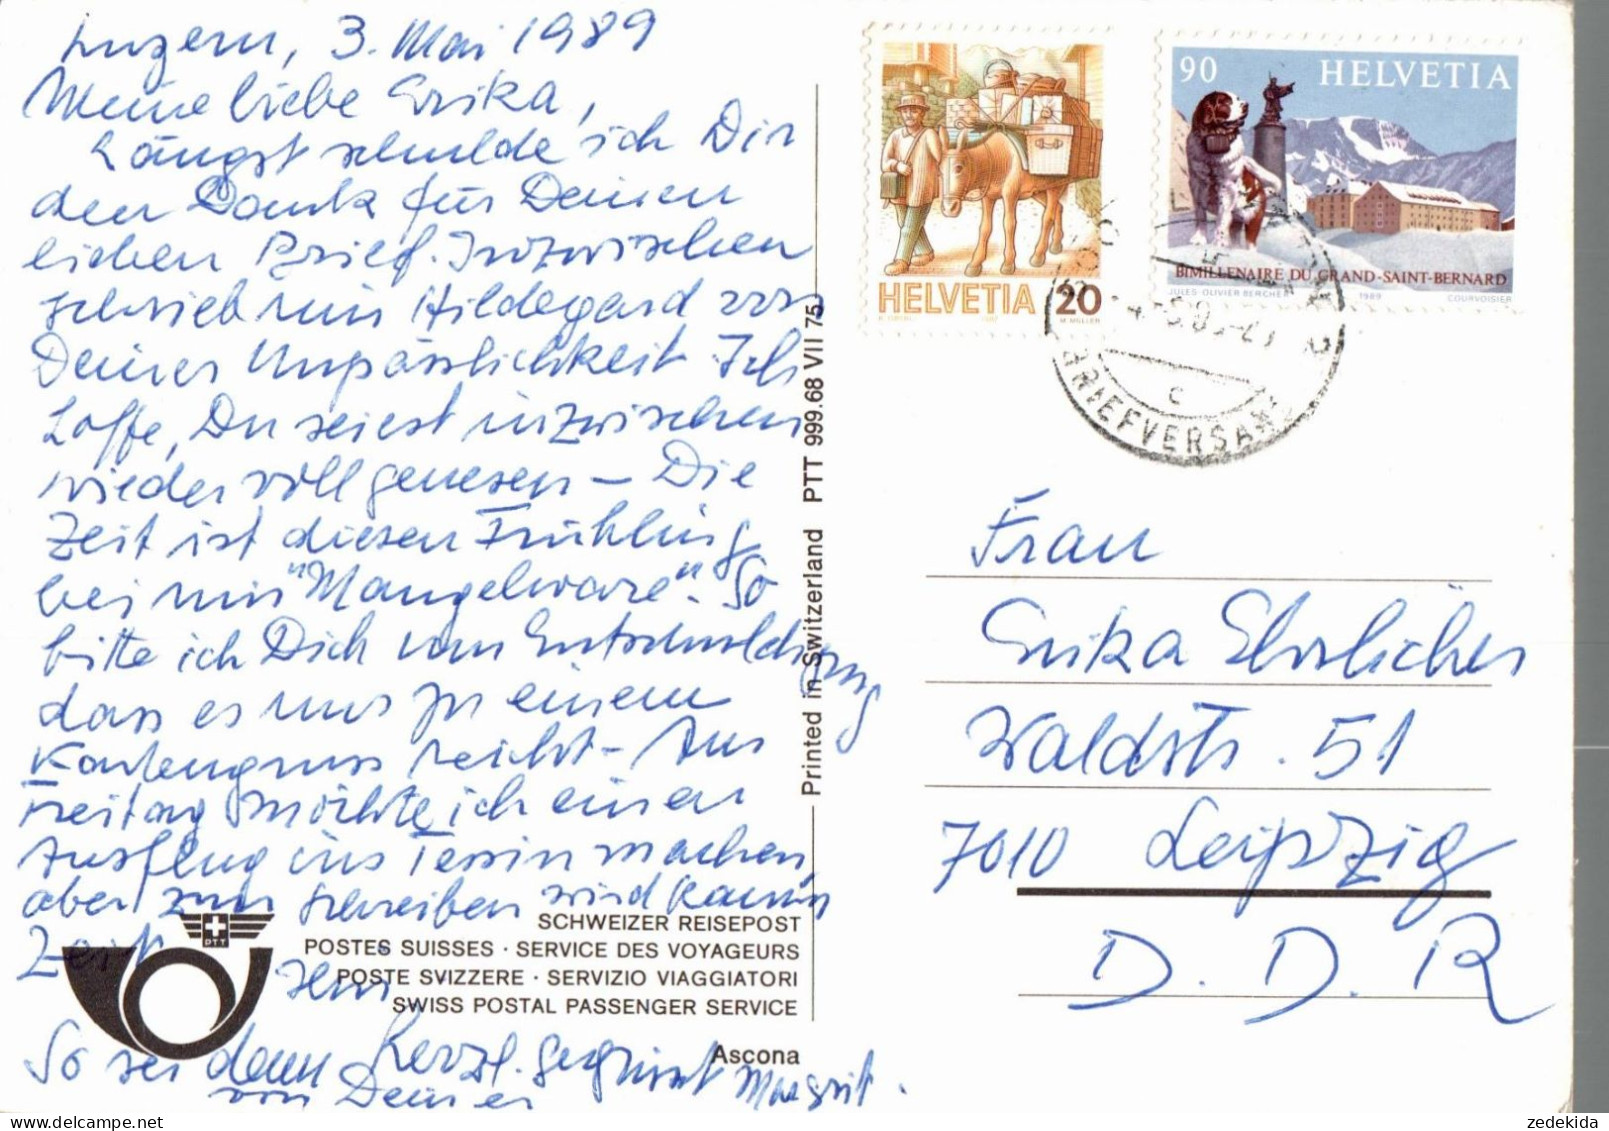 Luzern, 3. Mai 1989
Meine liebe Erika,
Längst schulde ich Dir
den Dank für Deinen
lieben Brief. Inzwischen
schrieb mir Hildegard von
Deiner Unpässlichkeit Ich
hoffe, Du seiest inzwischen
wieder voll genesen – Die
Zeit ist diesen Frühling
bei mir "Mangelware". So
bitte ich Dich um Entschuldigung
dass es nur zu einem
Kartengruss reicht – Am
Freitag möchte ich einen
Ausflug ins Tessin machen,
aber zum schreiben wird kaum
Zeit sein
So sei denn herzl. gegrüsst
von Deiner Margrit.
PTT
SCHWEIZER REISEPOST
POSTES SUISSES · SERVICE DES VOYAGEURS
POSTE SVIZZERE · SERVIZIO VIAGGIATORI
SWISS POSTAL PASSENGER SERVICE
Ascona
Printed in Switzerland PTT 999.68 VII 75
HELVETIA 20
M. MÜLLER
90 HELVETIA
BIMILLENAIRE DU GRAND-SAINT-BERNARD
JULES-OLIVIER BERCHER 1989 COURVOISIER
BRIEFVERSAND
c
Frau
Erika Ehrlicher
Waldstr. 51
7010 Leipzig
D. D. R
zedekida